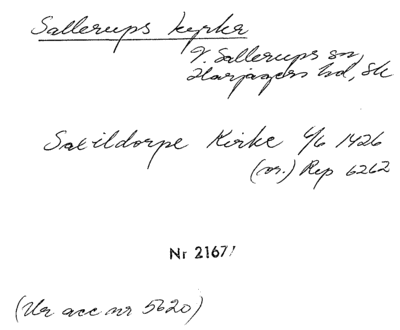 Sallerups kyrka
V. Sallerups sn,
Harjagers hd, Sk
Saxildorpe Kirke 4/6 1426
(or.) Rep 6262
Nr 2167/
(Ur acc nr 5620)